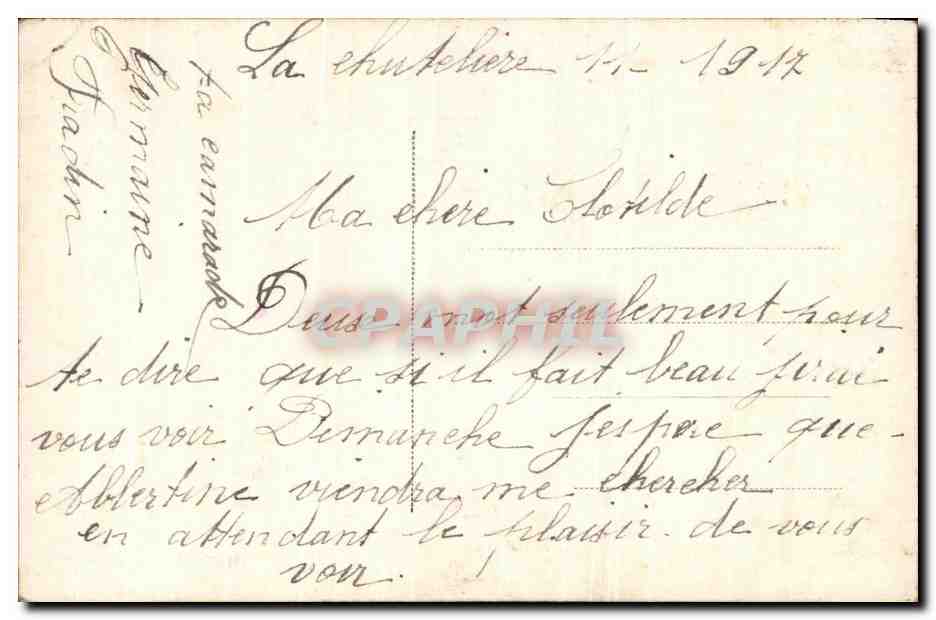 La chuteliere 11- 1917
Ma chere Clotilde
Deux mot seulement pour
te dire que si il fait beau j'irai
vous voir Dimanche j'espere que
Ablertine viendra me chercher
en attendant le plaisir de vous
voir. !
ta camarade
Germaine
Fradin
CPAPHIL